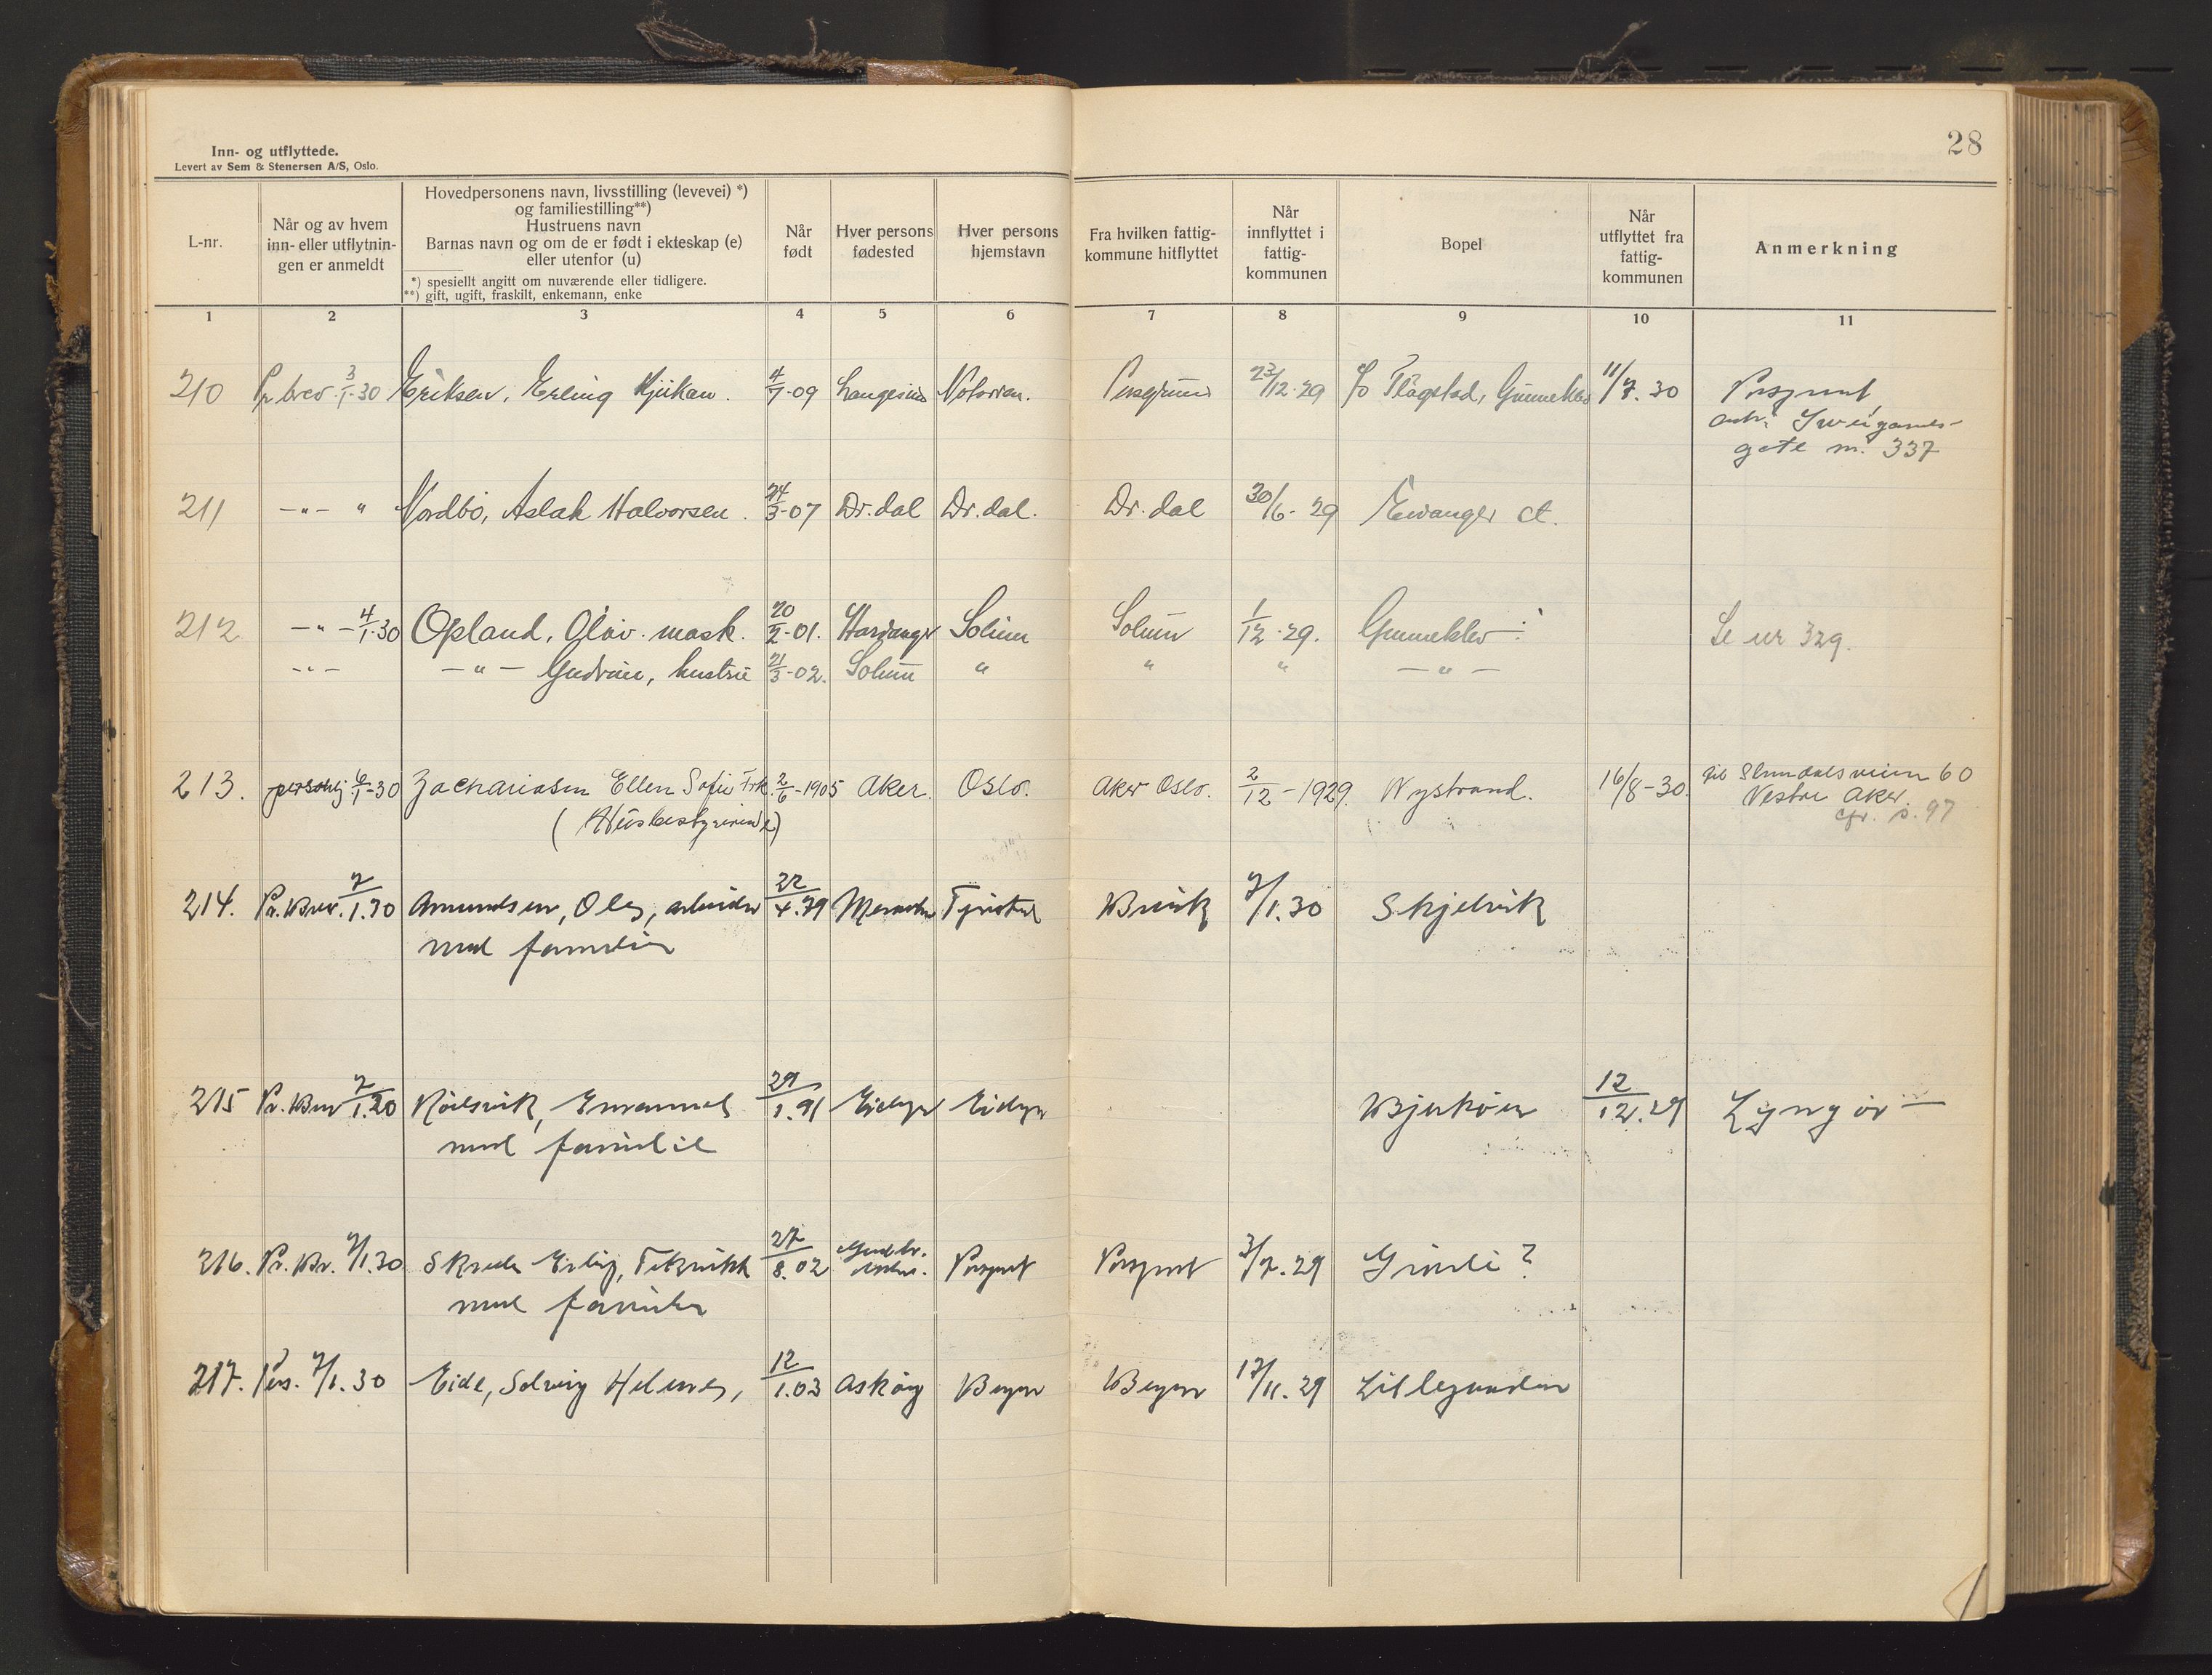 Inn- og utflyttede.
Levert av Sem & Stenersen A/S, Oslo.
28
L-nr.
Når og av hvem inn- eller utflytnin- gen er anmeldt
Hovedpersonens navn, livsstilling (levevei) *)
og familiestilling**)
Hustruens navn
Barnas navn og om de er født i ekteskap (e)
eller utenfor (u)
*) spesiellt angitt om nuværende eller tidligere.
**) gift, ugift, fraskilt, enkemann, enke
Når født
Hver persons fødested
Hver persons hjemstavn
Fra hvilken fattig- kommune hitflyttet
Når innflyttet i fattig- kommunen
Bopel
Når utflyttet fra fattig- kommunen
Anmerkning
1 2 3 4 5 6 7 8 9 10 11
210 Pr brev 3/1-30 Eriksen, Erling 4/7-09 Langesund Porsgrunn 23/12-29 c/o Flagstad, Gunneklev 11/7.30 Porsgrunn
gate nr. 337
211 -"- " Nordbö, Aslak Halvorsen. 24/3-07 Dr.dal Dr.dal. Dr.dal 30/6-29 Evanger
212 -"- 4/1-30 Opland, Olav mask. 20/2-01. Hardanger Solum Solum 1/12-29. Gunneklev Se nr 329.
-"- -"- Gudrun, hustru 21/3-02. Solum " " " -"-
213. personlig 6/1-30 Zachariasen Ellen Sofie Frk. 2/6-1905 Aker. Oslo. Aker Oslo. 2/12-1929. Nystrand. 16/8-30. til 60
(Husbestyrerinde) Vestre Aker.
cfr. s. 97
214. Pr. Brev. 7/1.30 Amundsen, Ole, arbeider 22/4.79 Brevik 7/1.30 Skjelvik
med familie
215 Pr. Brev 7/1.30 Emanuel 29/1.91 Eidanger Eidanger Bjerköen 12/12.29 Lyngör
med familie
216. Pr. Br. 7/1.30 Erling, 27/8.02 Porsgrunn Porsgrunn 3/7.29 Grinli?
med familie
217. Pers. 7/1.30 Eide, Solveig 12/1.03 Asköy Bergen Bergen 17/11.29 Lillegården